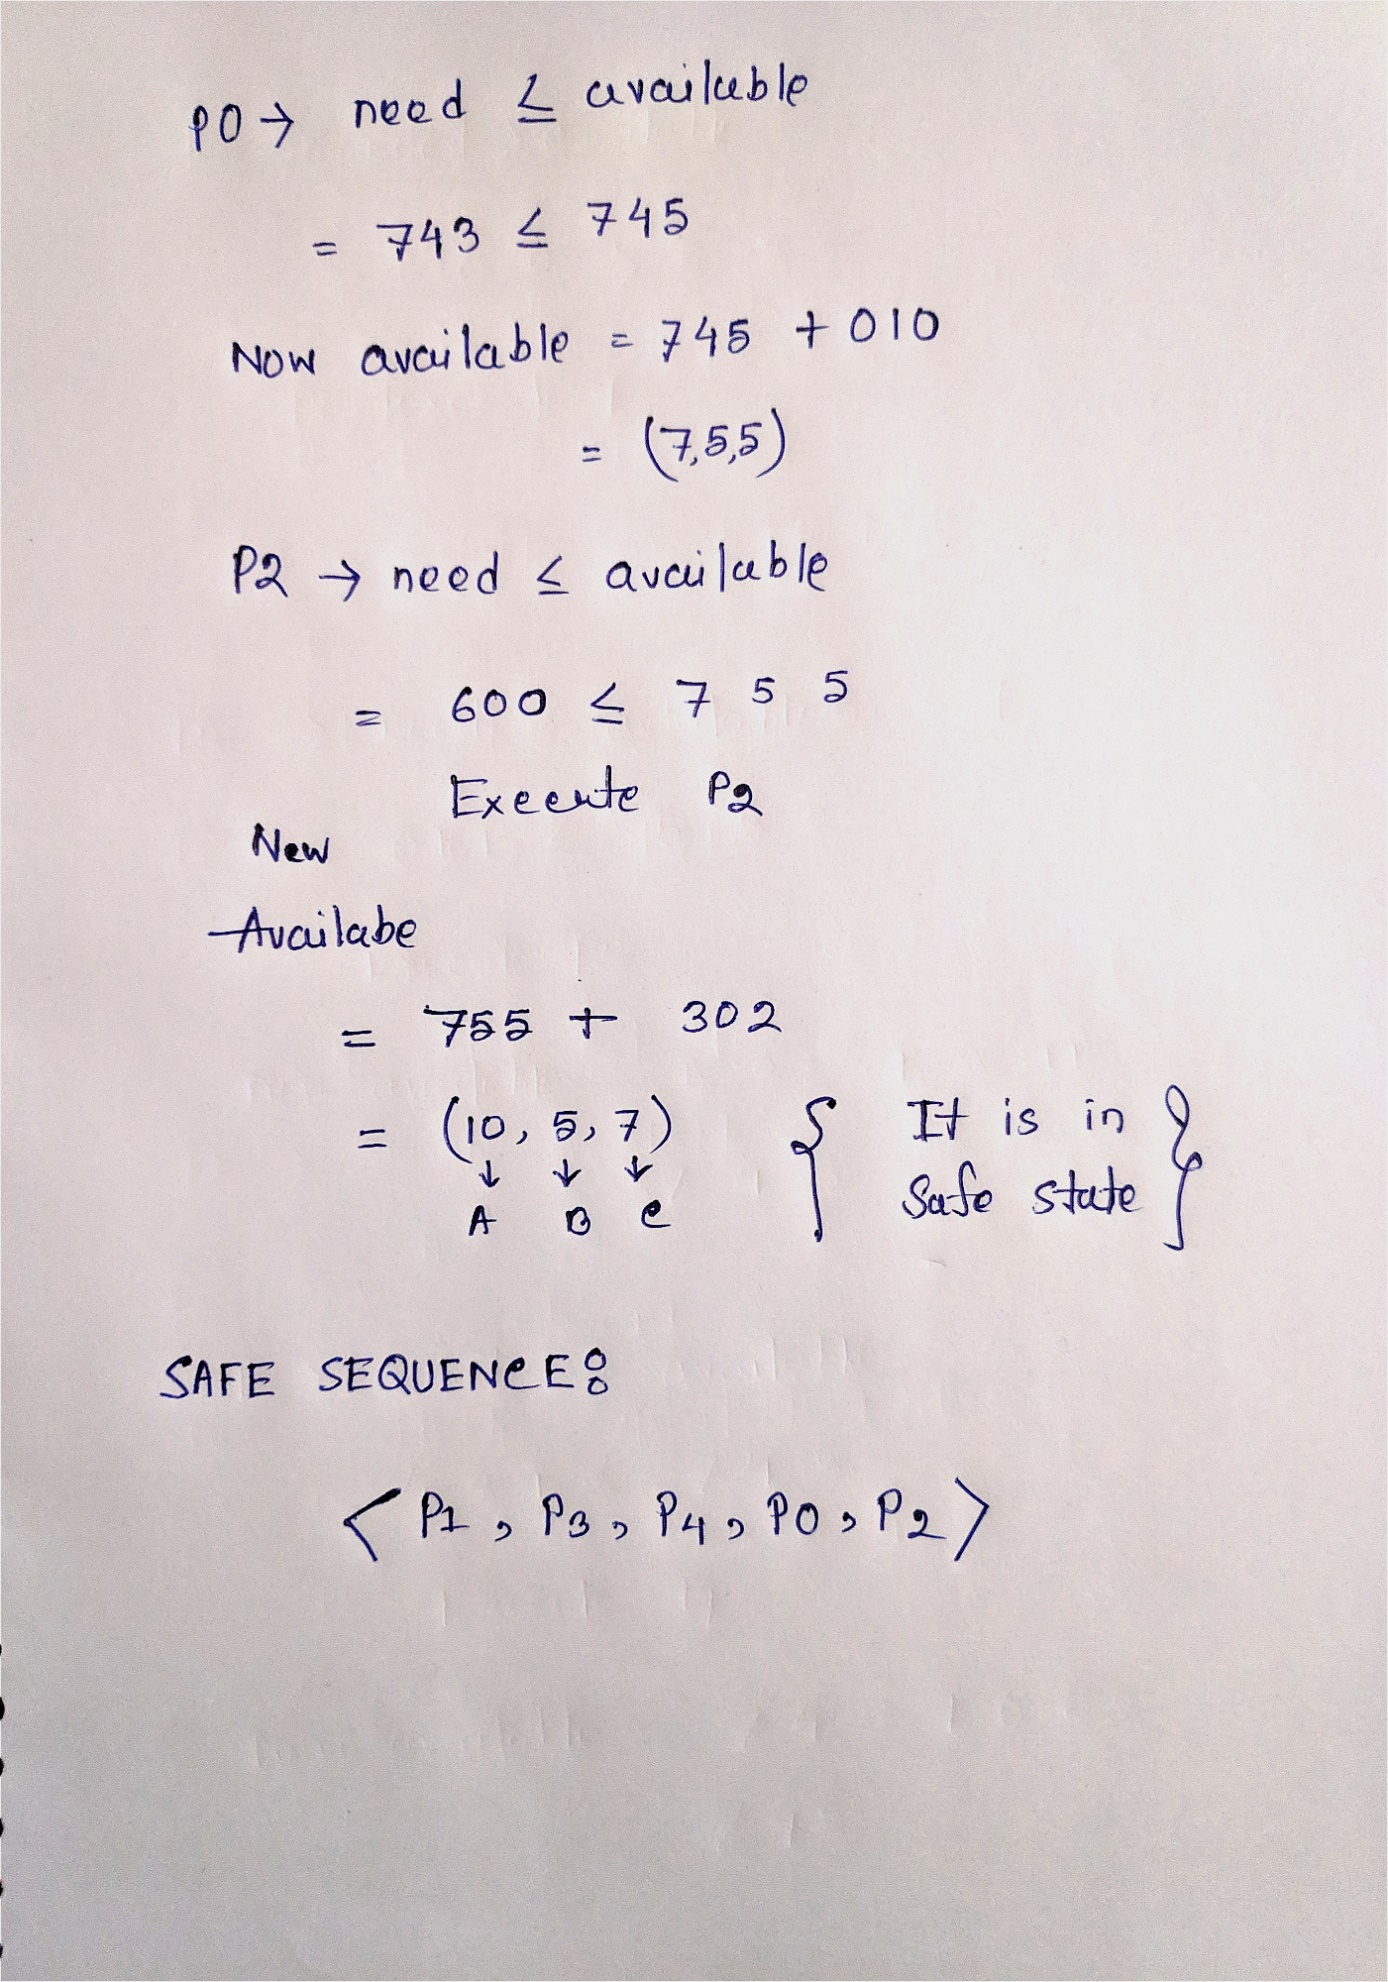 P0 → need ≤ available
= 743 ≤ 745
Now available = 745 + 010
= (7,5,5)
P2 → need ≤ available
= 600 ≤ 7 5 5
Execute P2
New
Availabe
= 755 + 302
= (10, 5, 7)
↓ ↓ ↓
A B C
{ It is in
Safe state }
SAFE SEQUENCE:
< P1, P3, P4, P0, P2 >